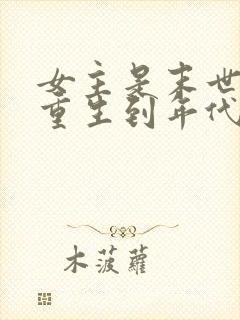 女主是末世
重生到年代
木菠蘿